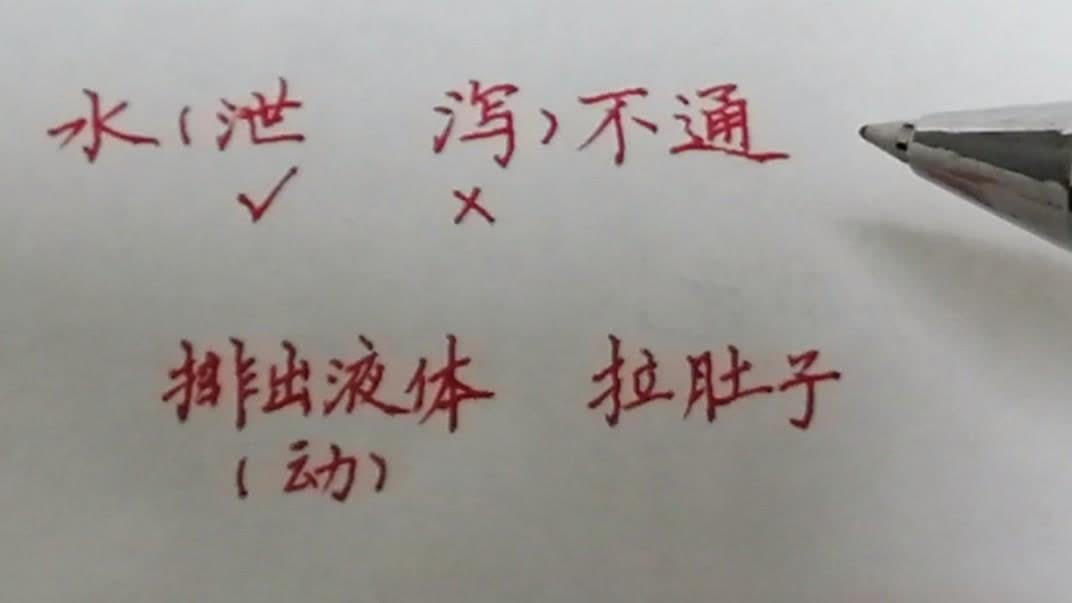 水(泄 泻)不通
✓ ×
排出液体 拉肚子
(动)